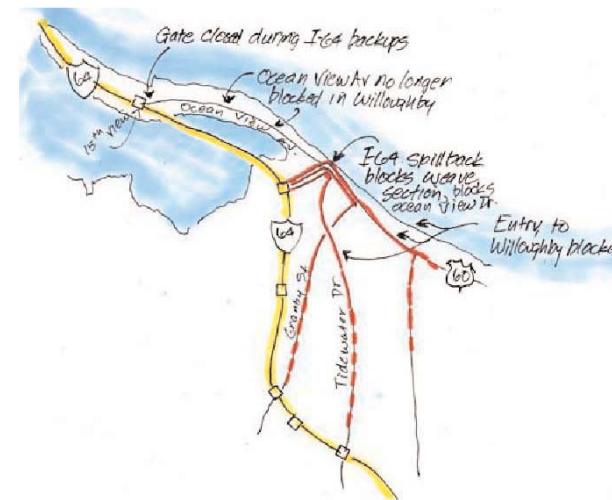 Gate closed during I-64 backups
Ocean View Av no longer
blocked in Willoughby
64
Ocean View Av.
15th View
I-64 spillback
blocks weave
section, blocks
Ocean View Dr.
Entry to
Willoughby blocked
64
60
Granby St
Tidewater Dr